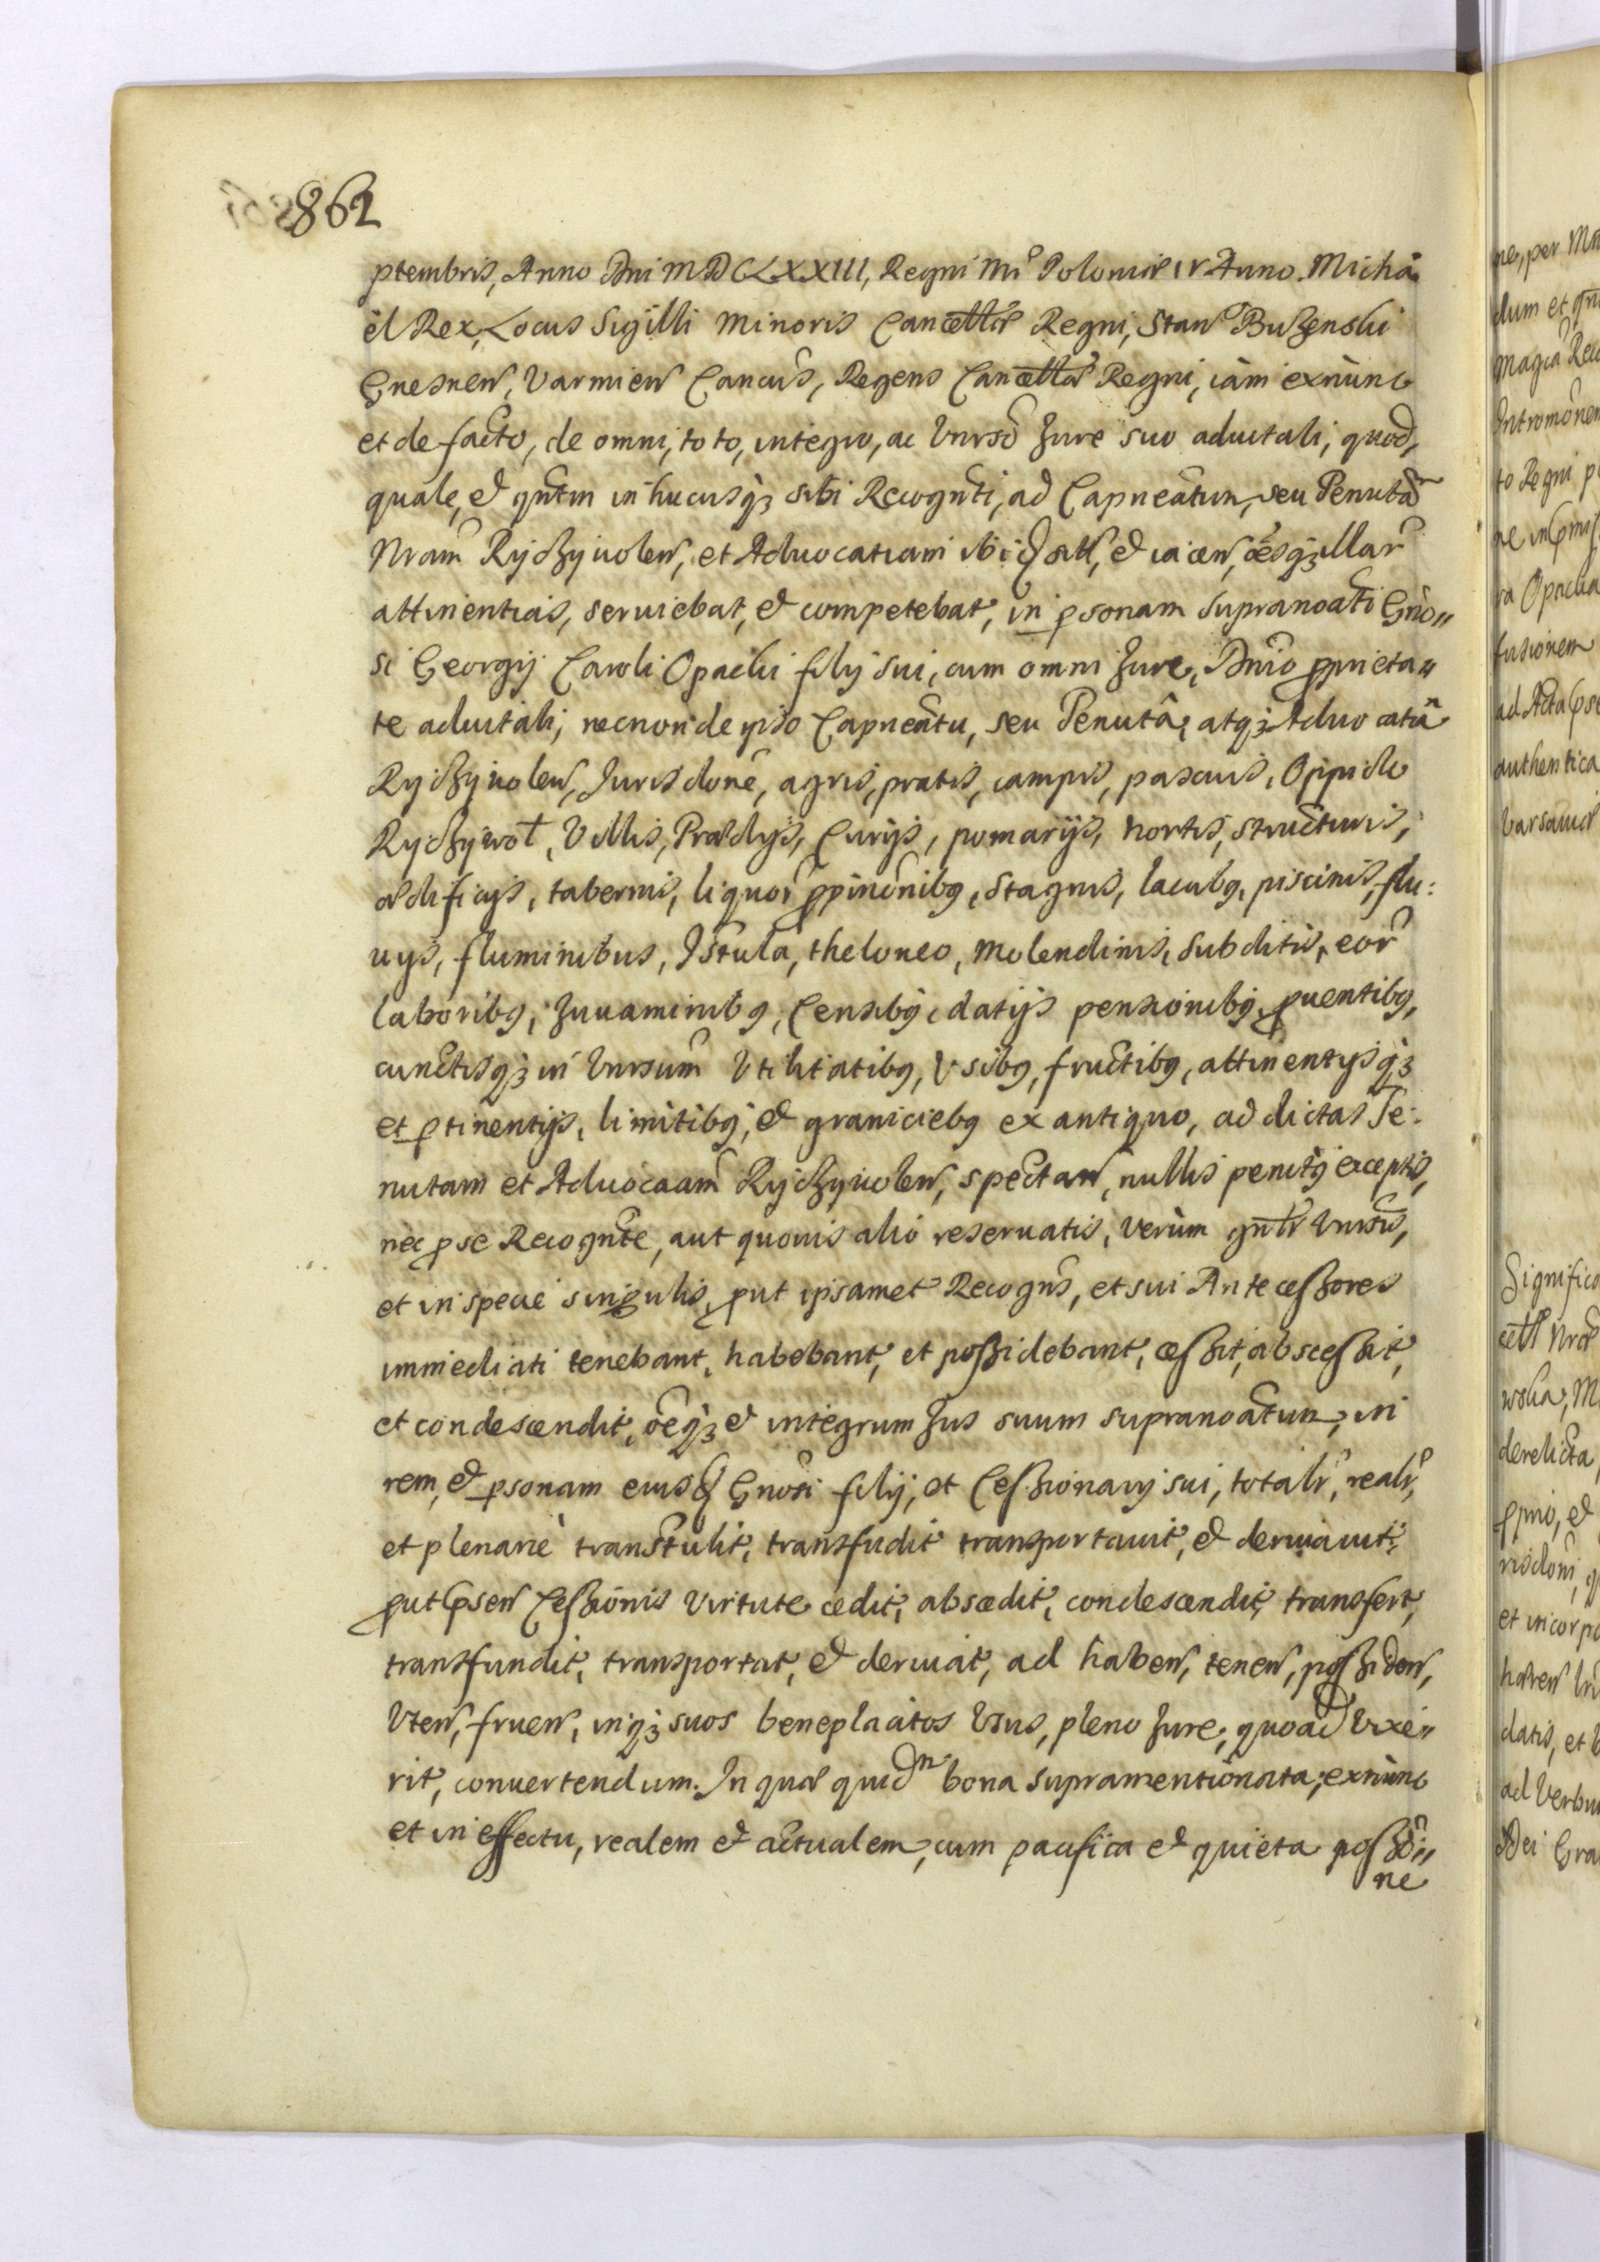 862
ptembris, Anno Dni MDCLXXIII, Regni Nri Poloniæ IV Anno. Micha
ël Rex, Locus Sigilli Minoris Cancellæ Regni, Stans Buzenski
Gnesnen, Varmien Cancus, Regens Cancellæ Regni, iàm exnùnc
et de facto, de omni, toto, integro, ac Vnrso Jure suo aduitali, quod,
quale, & qntm in hucusq3 sibi Recognti, ad Capneatum, seu Tenutã
Nram Rychywolen, et Aduocatiam ibid sitt, & iacen, oesq3 illar
attinentias, seruiebat, & competebat, in psonam Supranoati Gno"
si Georgij Caroli Opacki filij sui, cum omni Jure, Dnio pprieta"
te aduitali; necnon de ipso Capneatu, seu Tenutâ, atq3 Aduocatiâ
Rychywolen, Jurisdone, agris, pratis, campis, pascuis, Oppido
Rychywoł, Villis, Prædijs, Curijs, pomarijs, hortis, structuris,
ædificijs, tabernis, liquor ppinõnibq, Stagnis, lacubq, piscinis, flu:
uijs, fluminibus, Istula, theloneo, Molendinis, Subditis, eor
laboribq, Juuaminibq, Censibq, datijs pensionibq, puentibq,
cunctisq3 in Vnrsum Vtilitatibq, Vsibq, fructibq, attinentijsq3
et ptinentijs, limitibq, & graniciebq ex antiquo, ad dictas Te:
nutam et Aduocaam Rychywolen, spectan, nullis penitq exceptis,
nec p se Recognte, aut quouis alio reseruatis, verùm gntr Vnrsis,
et in specie singulis, put ipsamet Recogns, et sui Antecessores
immediati tenebant, habebant, et possidebant, cessit, abscessit,
et condescendit, oeq3 & integrum Jus suum supranoatum, in
rem, & psonam eiusd Gnosi filij, et Cessionarij sui, totalr, realr,
et plenariè transtulit, transfudit transportauit, & deriuauit:
put psen Cessionis virtute cedit, abscedit, condescendit, transfert,
transfundit, transportat, & deriuat, ad haben, tenen, possiden,
Vten, fruen, inq3 suos beneplacitos Vsus, pleno Jure, quoad Vixe"
rit, conuertendum. In quæ quidn bona supramentionata, exnùnc
et in effectu, realem & actualem, cum pacifica & quieta possõ"
ne